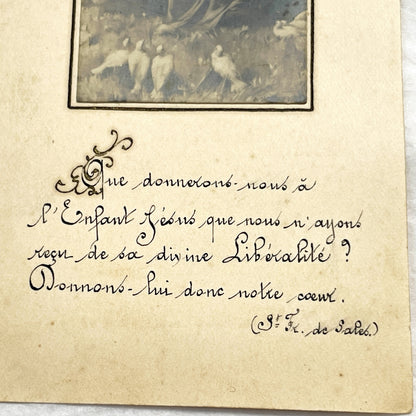 Que donnerons-nous à
l'Enfant Jésus que nous n'ayons
reçu de sa divine Libéralité ?
Donnons-lui donc notre cœur.
(St Fr. de Sales.)